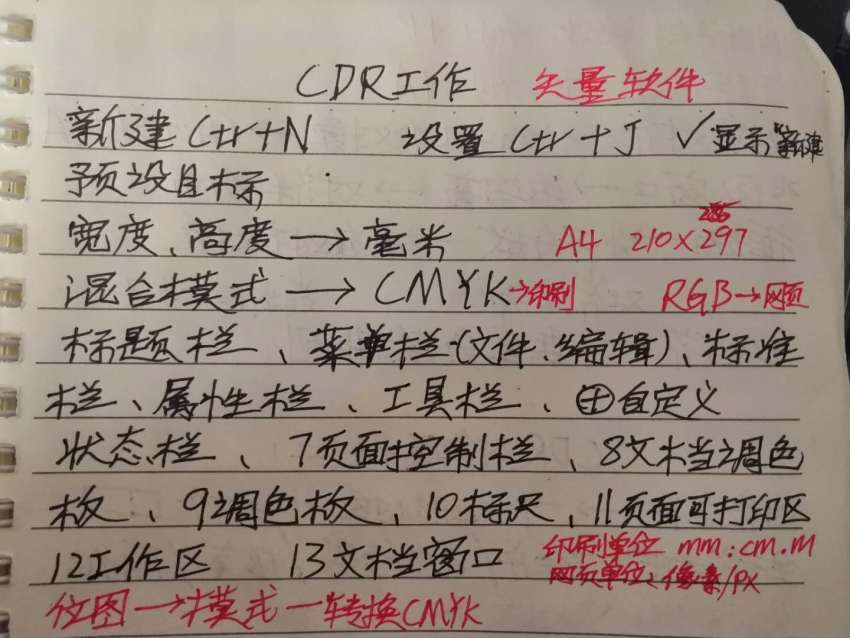 CDR工作 矢量软件
新建Ctr+N 设置Ctr+J ✓显示"新建
预设目标
宽度、高度→毫米 A4 210×297
混合模式→CMYK→印刷 RGB→网页
标题栏、菜单栏(文件、编辑)、标准
栏、属性栏、工具栏、⊕自定义
状态栏、7页面控制栏、8文档调色
板、9调色板、10标尺、11页面可打印区
12工作区 13文档窗口 印刷单位 mm:cm.m
网页单位:像素/px
位图→模式→转换CMYK